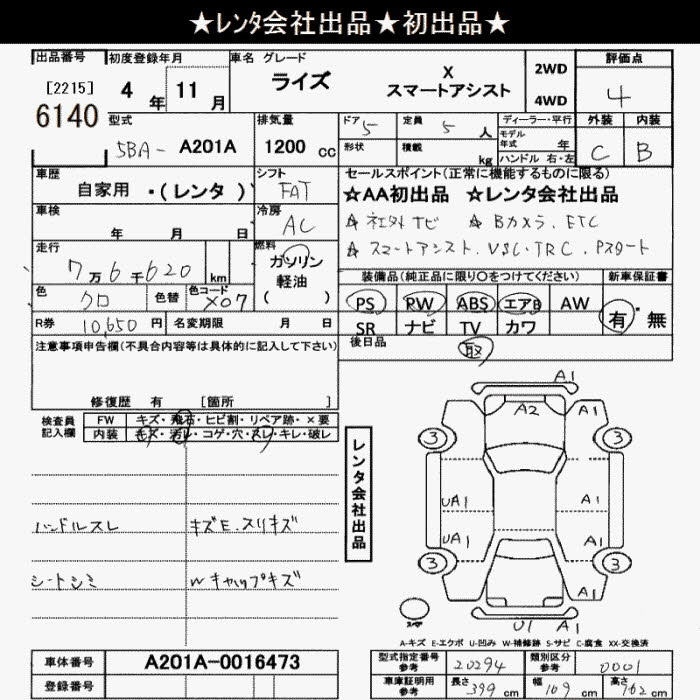 ★レンタ会社出品★初出品★
出品番号 初度登録年月 車名 グレード 評価点
[2215] 4年 11月 ライズ X スマートアシスト 2WD 4WD 4
6140
型式 排気量 ドア 5 定員 5人 ディーラー・平行 外装 内装
5BA- A201A 1200cc 形状 積載 kg モデル年式 年 ハンドル 右・左 C B
車歴 シフト セールスポイント(正常に機能するものに限る)
自家用 ・(レンタ) FAT ☆AA初出品 ☆レンタ会社出品
車検 冷房 ☆ 社外ナビ ☆ Bカメラ、ETC
年 月 日 AC ☆ スマートアシスト、VSC・TRC、Pスタート
走行 燃料 装備品(純正品に限り○をつけてください) 新車保証書
7万6千620km ガソリン 軽油 ( ) PS PW ABS エアB AW 有・無
色 クロ 色替 色コード X07 SR ナビ TV カワ
R券 10,650円 名変期限 月 日 後日品 取
注意事項申告欄(不具合内容等は具体的に記入して下さい)
修復歴 有 [箇所 ]
検査員記入欄 FW キズ・飛石・ヒビ割・リペア跡・×要
内装 キズ・汚レ・コゲ・穴・スレ・キレ・破レ
レンタ会社出品
ハンドルスレ キズE、スリキズ
シートシミ Wキャップキズ
A1
A2 A1
3 3
UA1 A1
UA1 A1
3 3
A1
U1 A1
スペア
A-キズ E-エクボ U-凹み W-補修跡 S-サビ C-腐食 XX-交換済
車体番号 A201A-0016473 型式指定番号 参考 20294 類別区分 参考 0001
登録番号 車庫証明用 参考 長さ 399cm 幅 169cm 高さ 162cm